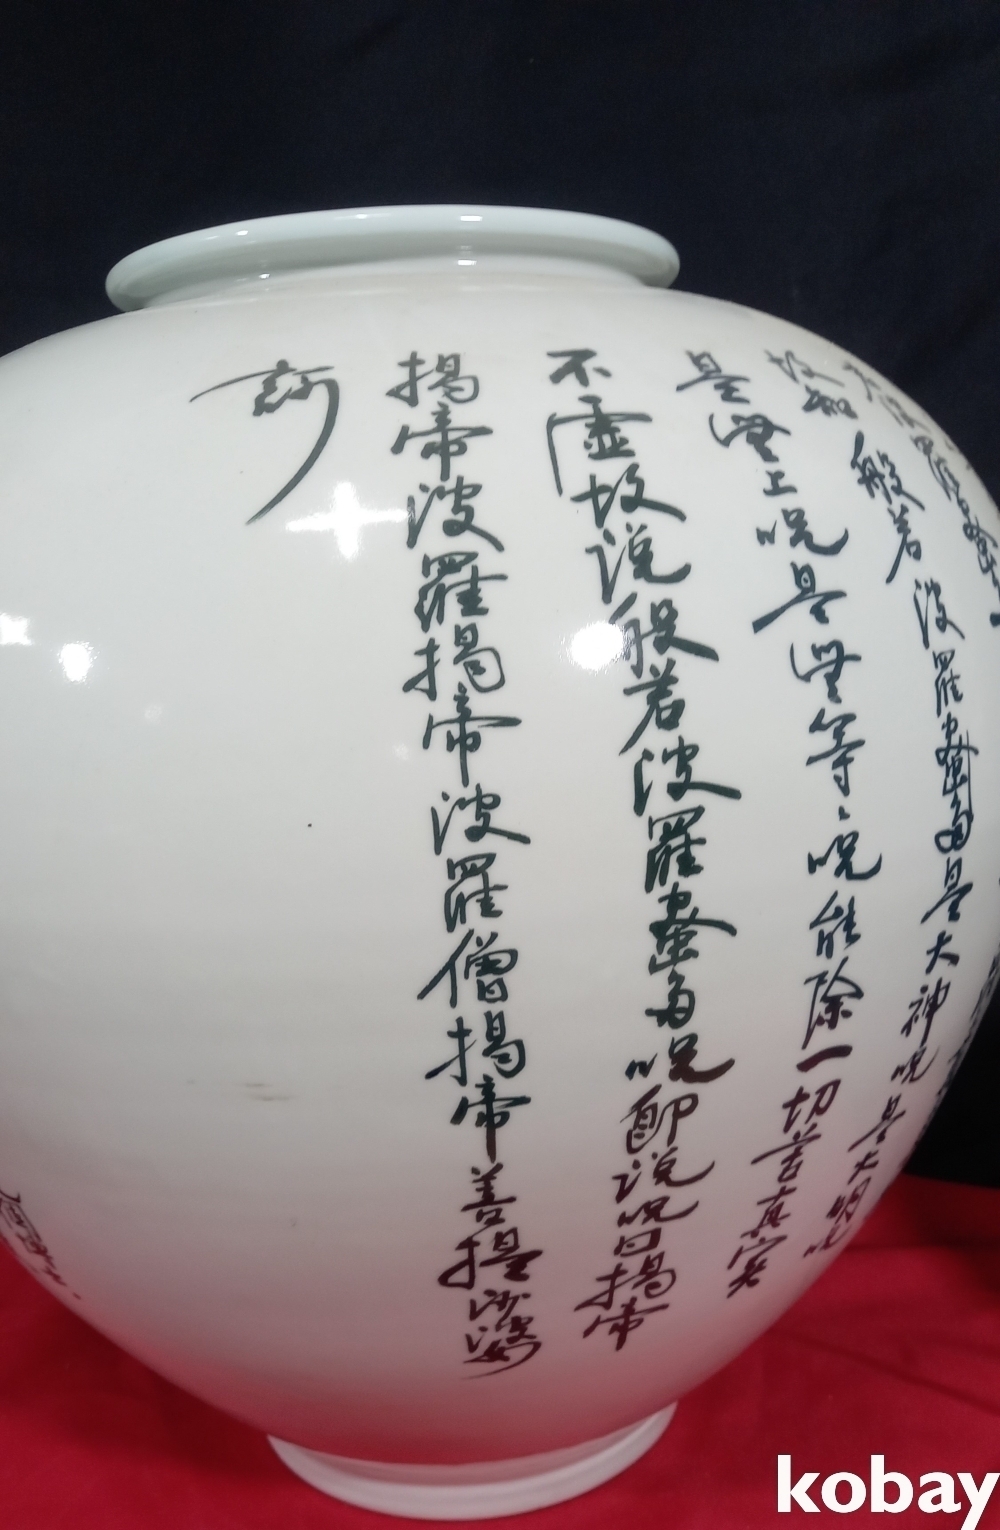 故知般若波羅蜜多是大神呪是大明呪
是無上呪是無等〻呪能除一切苦真實
不虛故説般若波羅蜜多呪即説呪曰揭帝
揭帝波羅揭帝波羅僧揭帝菩提沙婆
訶
kobay